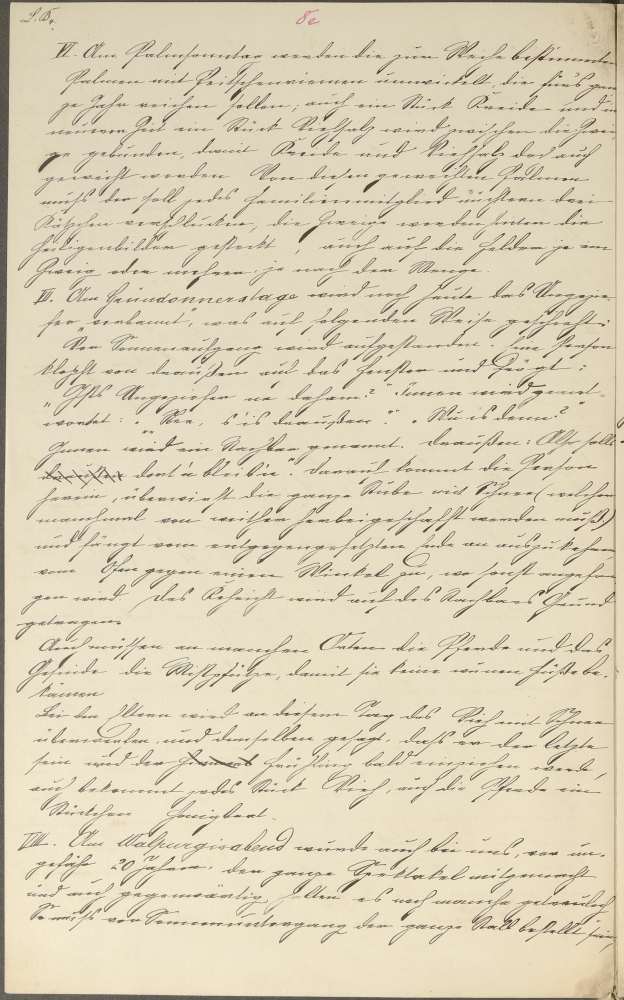 8c
VI. Am Palmsonntag werden die zur Weihe bestimmten
Palmen mit Peitschenriemen umwickelt, die fürs ganze
ge Jahr reichen sollen; auch ein Stück Kreide und in
neuerer Zeit ein Stück Viehsalz wird zwischen die Zwei-
ge gebunden, damit Kreide und Viehsalz das auch
geweiht werden. Von diesen geweihten Palmen
muß der soll jedes Familienmitglied nüchtern drei
Kätzchen verschlucken, die Zweige werden hinter die
Heiligenbilder gesteckt, auch auf die Felder je ein
Zweig oder mehrere je nach der Menge.
VII. Am Gründonnerstage wird noch heute das Ungezie-
fer "verbannt", was auf folgende Weise geschieht:
Vor Sonnenaufgang wird aufgestanden. Eine Person
klopft von draußen auf das Fenster und frägt:
"Is's Ungeziefer ne daham?" Innen wird geant-
wortet: "Nee, s'is draußen". "Wu is denn?"
Innen wird ein Nachbar genannt. Draußen: Also solls
dort'n bleib'n." Darauf kommt die Person
herein, überwirft die ganze Stube mit Schnee (welcher
manchmal von weither herbeigeschafft werden muß)
und fängt vom entgegengesetzten Ende an auszukehren
vom Ofen gegen einen Winkel zu, wo sonst angefan-
gen wird. Das Kehricht wird auf des Nachbars Grund
getragen.
Auch müssen an manchen Orten die Pferde und das
Gesinde die Mistpfütze, damit sie keine wunden Füße be-
kämen
Bei den Eltern wird an diesem Tag das Vieh mit Schnee
überworfen und demselben gesagt, daß er der letzte
sein und der Frühling bald einziehen werde,
auch bekommt jedes Stück Vieh, auch die Pferde ein
Stückchen Honigbrot.
VIII. Am Walpurgisabend wurde auch bei uns, vor un-
gefähr 20 Jahren, der ganze Spektakel mitgemacht
und auch gegenwärtig halten es noch manche getreulich
So muß vor Sonnenuntergang der ganze Stall bestellt sein,